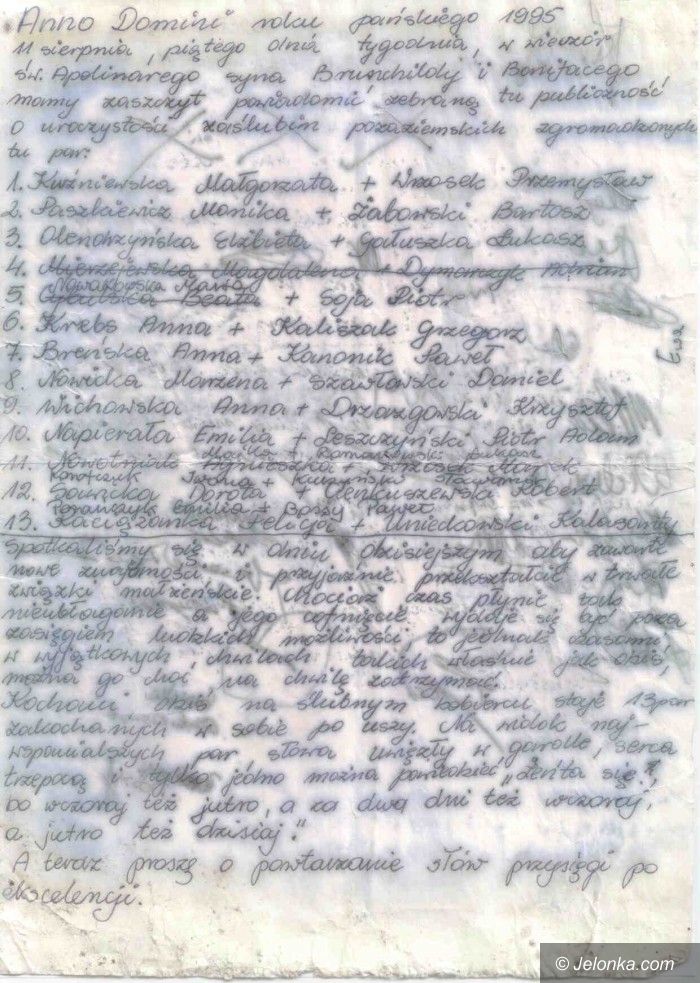 Anno Domini roku pańskiego 1995
11 sierpnia, piątego dnia tygodnia, w wieczór
św. Apolinarego syna Brunchildy i Bonifacego
mamy zaszczyt powiadomić zebraną tu publiczność
o uroczystości zaślubin pozaziemskich zgromadzonych
tu par:
1. Kuźniewska Małgorzata + Wrzosek Przemysław
2. Paszkiewicz Monika + Żabowski Bartosz
3. Olendrzyńska Elżbieta + Gałuszka Łukasz
4. Mierzejewska Magdalena + Dymarczyk
Nowakowska Marta
5. Beata + Soja Piotr
6. Krebs Anna + Kaliszak Grzegorz
Ewa
7. Breńska Anna + Kanonik Paweł
8. Nowicka Marzena + Szawłowski Daniel
9. Wichowska Anna + Drzazgowski Krzysztof
10. Napierała Emilia + Leszczyński Piotr Adam
11. Agnieszka + Wrzosek Marek
Iwona + Sławomir
12. Sawicka Dorota + Robert
Emilia + Bossy Paweł
13. Felicja + Kalasanty
spotkaliśmy się w dniu dzisiejszym aby zawarte
nowe znajomości i przyjaźnie przekształcić w trwałe
związki małżeńskie. Chociaż czas płynie tak
nieubłaganie a jego cofnięcie wydaje się być poza
zasięgiem ludzkich możliwości to jednak czasami
w wyjątkowych chwilach takich właśnie jak dziś,
można go choć na chwilę zatrzymać.
Kochani dziś na ślubnym kobiercu staje 13 par
zakochanych w sobie po uszy. Na widok naj-
wspanialszych par słowa uwięzły w gardle, serca
trzepocą i tylko jedno można powiedzieć „Żeńta się!,
bo wczoraj też jutro, a za dwa dni też wczoraj,
a jutro też dzisiaj."
A teraz proszę o powtarzanie słów przysięgi po
ekscelencji.
© Jelonka.com